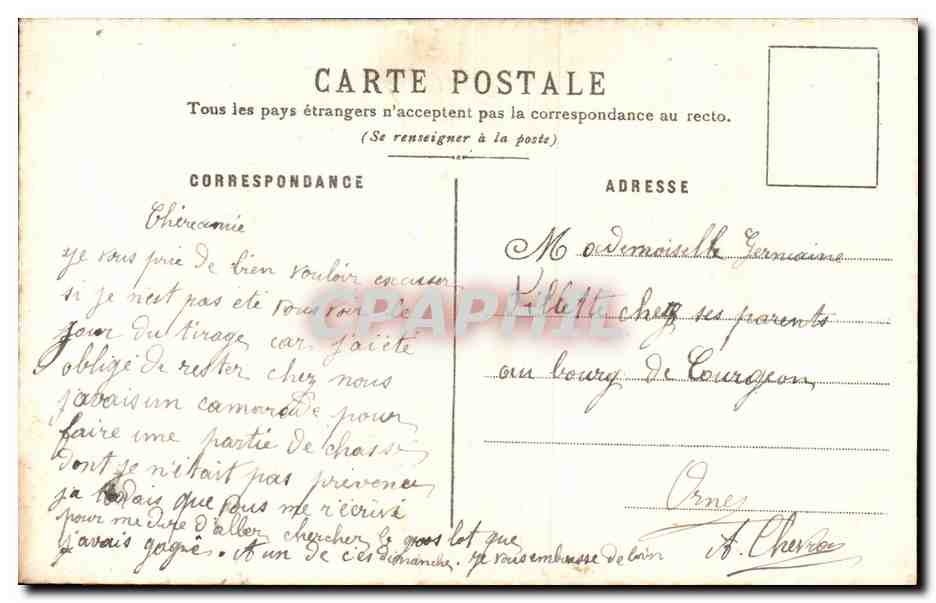 CARTE POSTALE
Tous les pays étrangers n'acceptent pas la correspondance au recto.
(Se renseigner à la poste)
CORRESPONDANCE
Chère amie
Je vous prie de bien vouloir excuser
si je nest pas été vous voir le
jour du tirage car j'ai été
obligé de rester chez nous
j'avais un camarade pour
faire une partie de chasse
dont je n'était pas prévenu
que vous me r'écrivé
pour me dire d'aller chercher le gros lot que
j'avais gagné. A un de c'es dimanche. Je vous embrasse de loin
A. Chevra
ADRESSE
Mademoiselle Germaine
Villette chez ses parents
au bourg de Courgeon
Orne
CPAPHIL